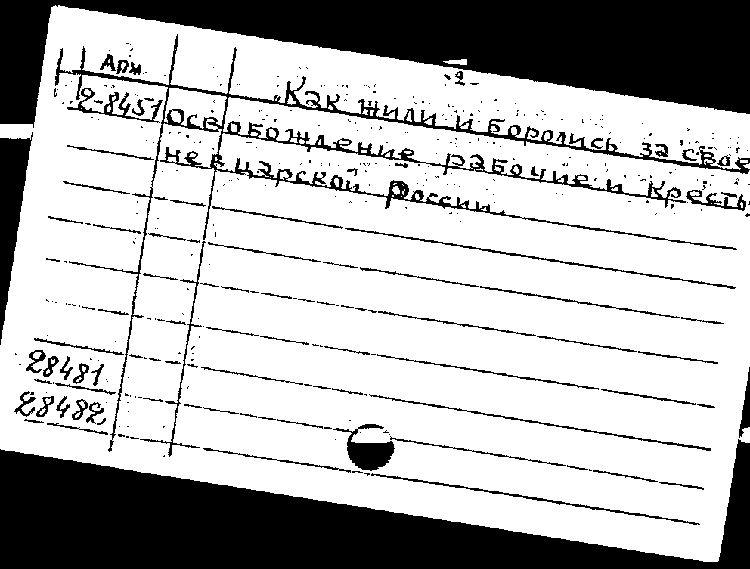 -2-
Арм
„Как жили и боролись за свое
2-8451 освобождение рабочие и кресть
не в царской России.
28481
28482